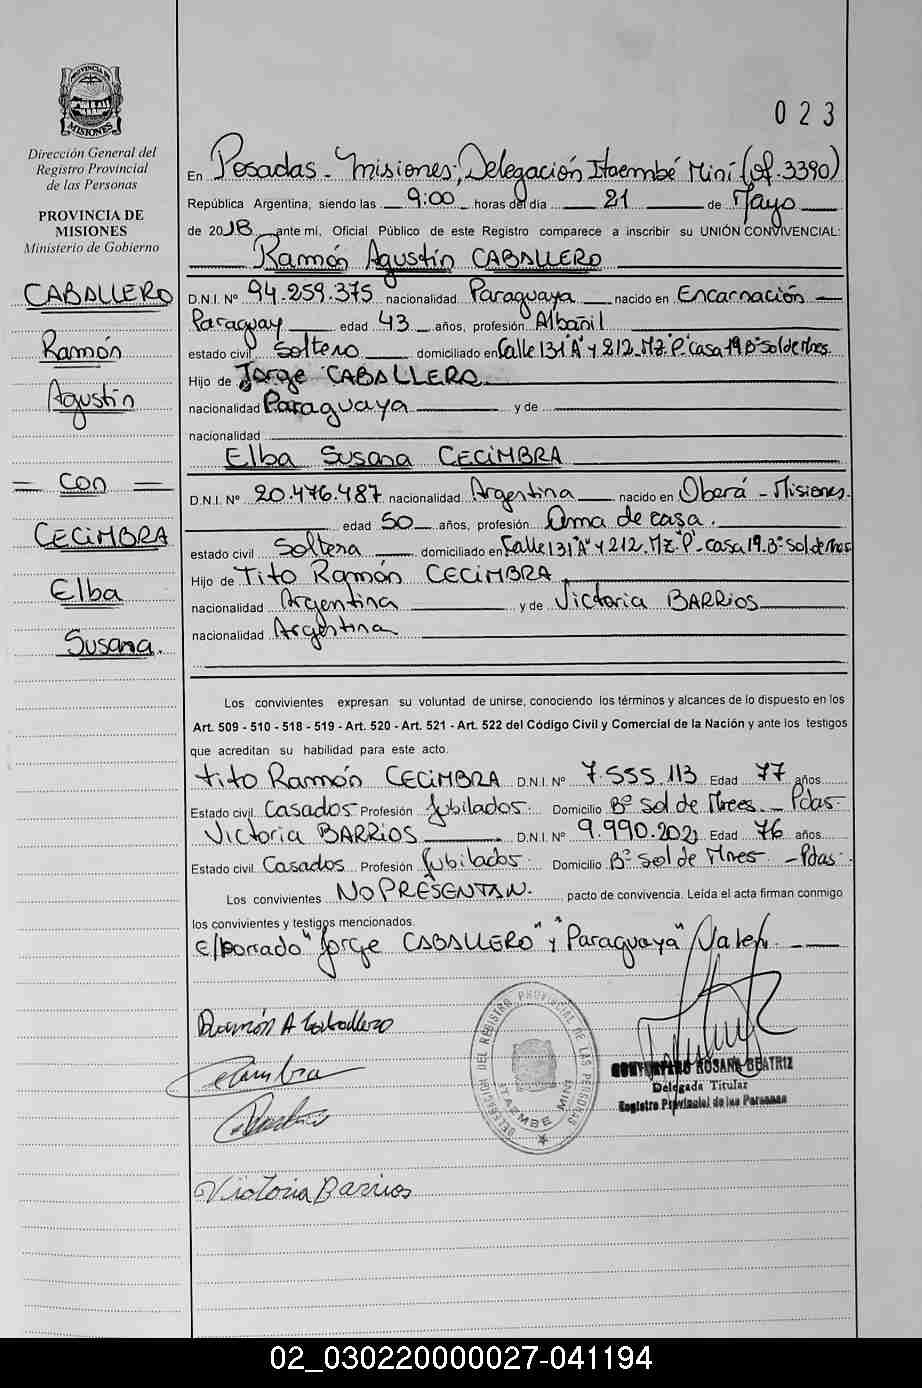 023
PROVINCIA DE
MISIONES
Dirección General del
Registro Provincial
de las Personas
PROVINCIA DE
MISIONES
Ministerio de Gobierno
CABALLERO
Ramón
Agustín
= con =
CECIMBRA
Elba
Susana.
En Posadas - Misiones; Delegación Itaembé Miní (of. 3390)
República Argentina, siendo las 9:00 horas del día 21 de Mayo
de 2018 ante mí, Oficial Público de este Registro comparece a inscribir su UNIÓN CONVIVENCIAL:
Ramón Agustín CABALLERO
D.N.I. Nº 94.259.375 nacionalidad Paraguaya nacido en Encarnación -
Paraguay edad 43 años, profesión Albañil
estado civil Soltero domiciliado en Calle 131"A" y 212. Mz. P. casa 19. Bº sol de Mnes.
Hijo de Jorge CABALLERO
nacionalidad Paraguaya y de
nacionalidad
Elba Susana CECIMBRA
D.N.I. Nº 20.476.487 nacionalidad Argentina nacido en Oberá - Misiones.
edad 50 años, profesión Ama de casa.
estado civil Soltera domiciliado en Calle 131"A" y 212. Mz "P" - casa 19. Bº sol de Mnes
Hijo de Tito Ramón CECIMBRA
nacionalidad Argentina y de Victoria BARRIOS
nacionalidad Argentina
Los convivientes expresan su voluntad de unirse, conociendo los términos y alcances de lo dispuesto en los
Art. 509 - 510 - 518 - 519 - Art. 520 - Art. 521 - Art. 522 del Código Civil y Comercial de la Nación y ante los testigos
que acreditan su habilidad para este acto.
Tito Ramón CECIMBRA D.N.I. Nº 7.555.113 Edad 77 años
Estado civil Casados Profesión Jubilados Domicilio Bº Sol de Mnes - Pdas-
Victoria BARRIOS D.N.I. Nº 9.990.202 Edad 76 años
Estado civil Casados Profesión Jubilados Domicilio Bº Sol de Mnes - Pdas-
Los convivientes NO PRESENTAN. pacto de convivencia. Leída el acta firman conmigo
los convivientes y testigos mencionados.
El borrado "Jorge CABALLERO" y "Paraguaya" Valen.
Ramón A Caballero
Victoria Barrios
DELEGACION DEL REGISTRO PROVINCIAL DE LAS PERSONAS
ITAZMBE MINI
ROSANA BEATRIZ
Delegada Titular
Registro Provincial de las Personas
02_030220000027-041194